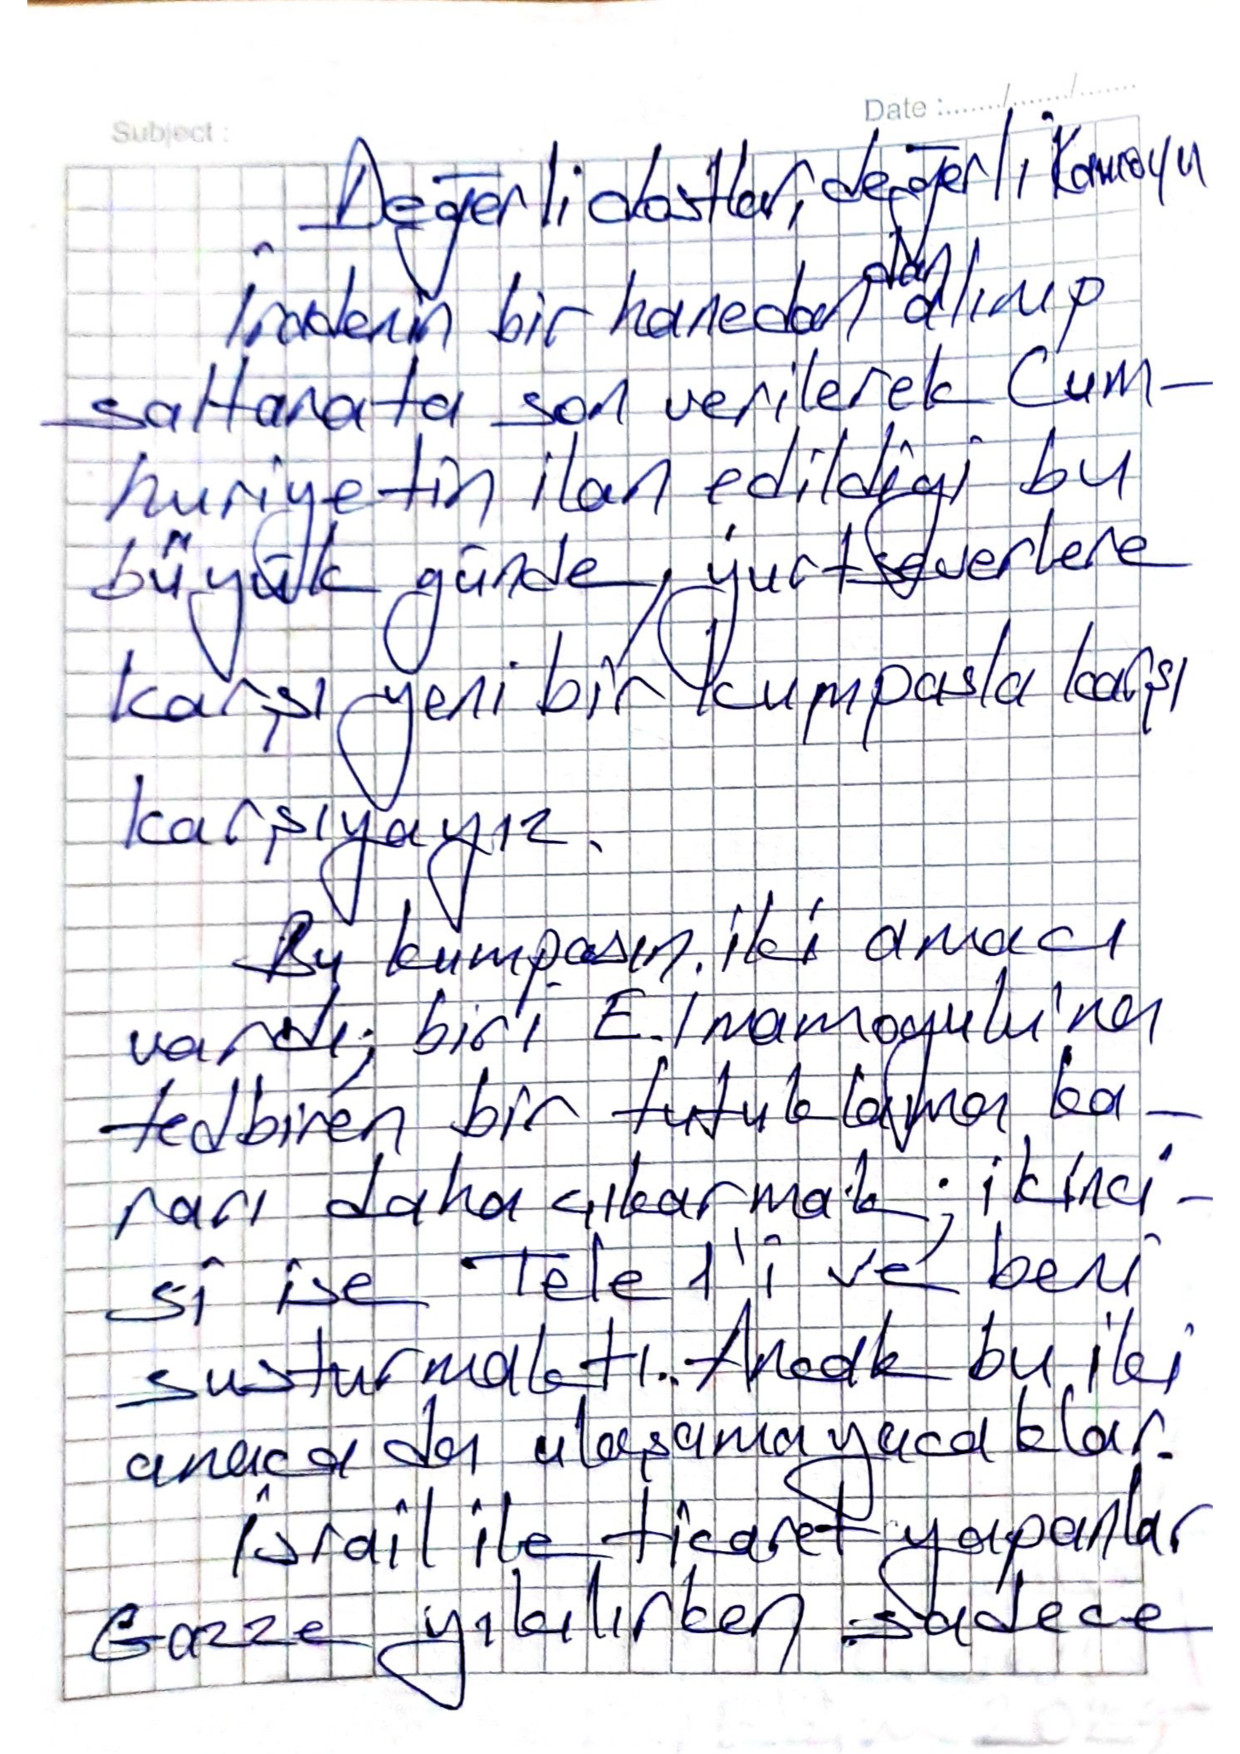 Subject :
Date :......./......./.......
Değerli dostlar, değerli Kamuoyu
İradenin bir hanedandan alınıp
saltanata son verilerek Cum-
huriyetin ilan edildiği bu
büyük günde, yurtseverlere
karşı yeni bir kumpasla karşı
karşıyayız.
Bu kumpasın iki amacı
vardı; biri E. İmamoğulu'na
tedbiren bir tutuklama ka-
rarı daha çıkarmak; ikinci-
si ise Tele 1'i ve beni
susturmaktı. Ancak bu iki
amaca da ulaşamayacaklar.
İsrail ile ticaret yapanlar
Gazze yıkılırken sadece